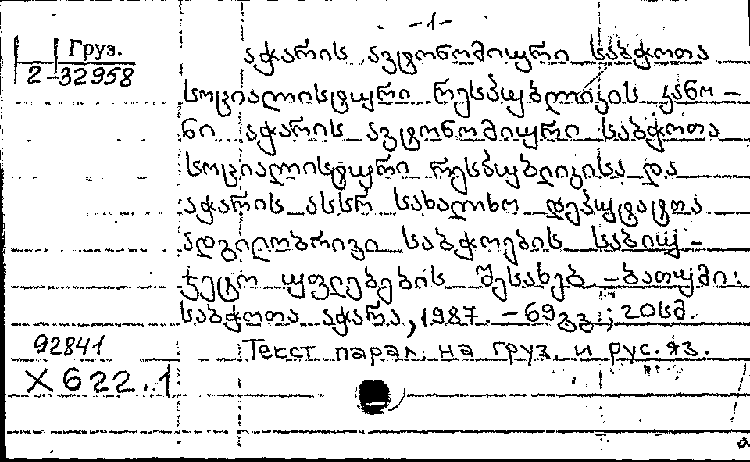 -1-
Груз.
2-32958
აჭარის ავტონომიური საბჭოთა
სოციალისტური რესპუბლიკის კანო-
ნი აჭარის ავტონომიური საბჭოთა
სოციალისტური რესპუბლიკისა და
აჭარის ასსრ სახალხო დეპუტატთა
ადგილობრივი საბჭოების საბიუ-
ჯეტო უფლებების შესახებ - ბათუმი:
საბჭოთა აჭარა, 1987. - 69გვ; 20სმ.
92841
Текст парал. на груз. и рус. яз.
X 622.1